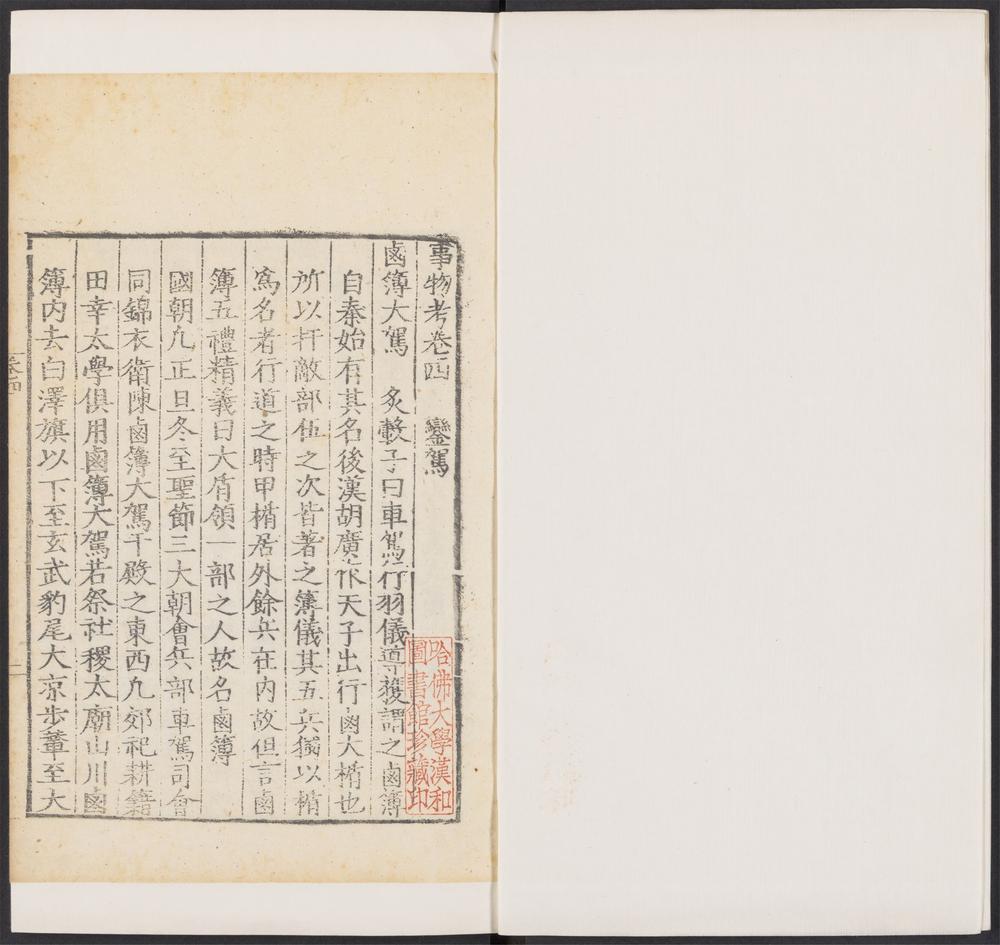 事物考卷四　鑾駕
鹵簿大駕　炙轂子曰車駕行羽儀導護謂之鹵簿
自秦始有其名後漢胡廣作天子出行鹵大楯也
所以扞敵部伍之次皆著之簿儀其五兵獨以楯
爲名者行道之時甲楯居外餘兵在内故但言鹵
簿五禮精義曰大盾領一部之人故名鹵簿
國朝凢正旦冬至聖節三大朝會兵部車駕司會
同錦衣衛陳鹵簿大駕于殿之東西凢郊祀耕籍
田幸太學俱用鹵簿大駕若祭社稷太廟山川鹵
簿内去白澤旗以下至玄武豹尾大凉步輦至大
卷四
一
哈佛大學漢和
圖書館珍藏印